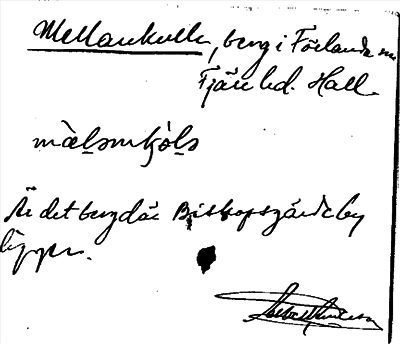 Mellankulle, berg i Förlanda sn
Fjäre hd. Hall.
mälsmkóls
Är det berg där Bispopsgårde by
ligger.